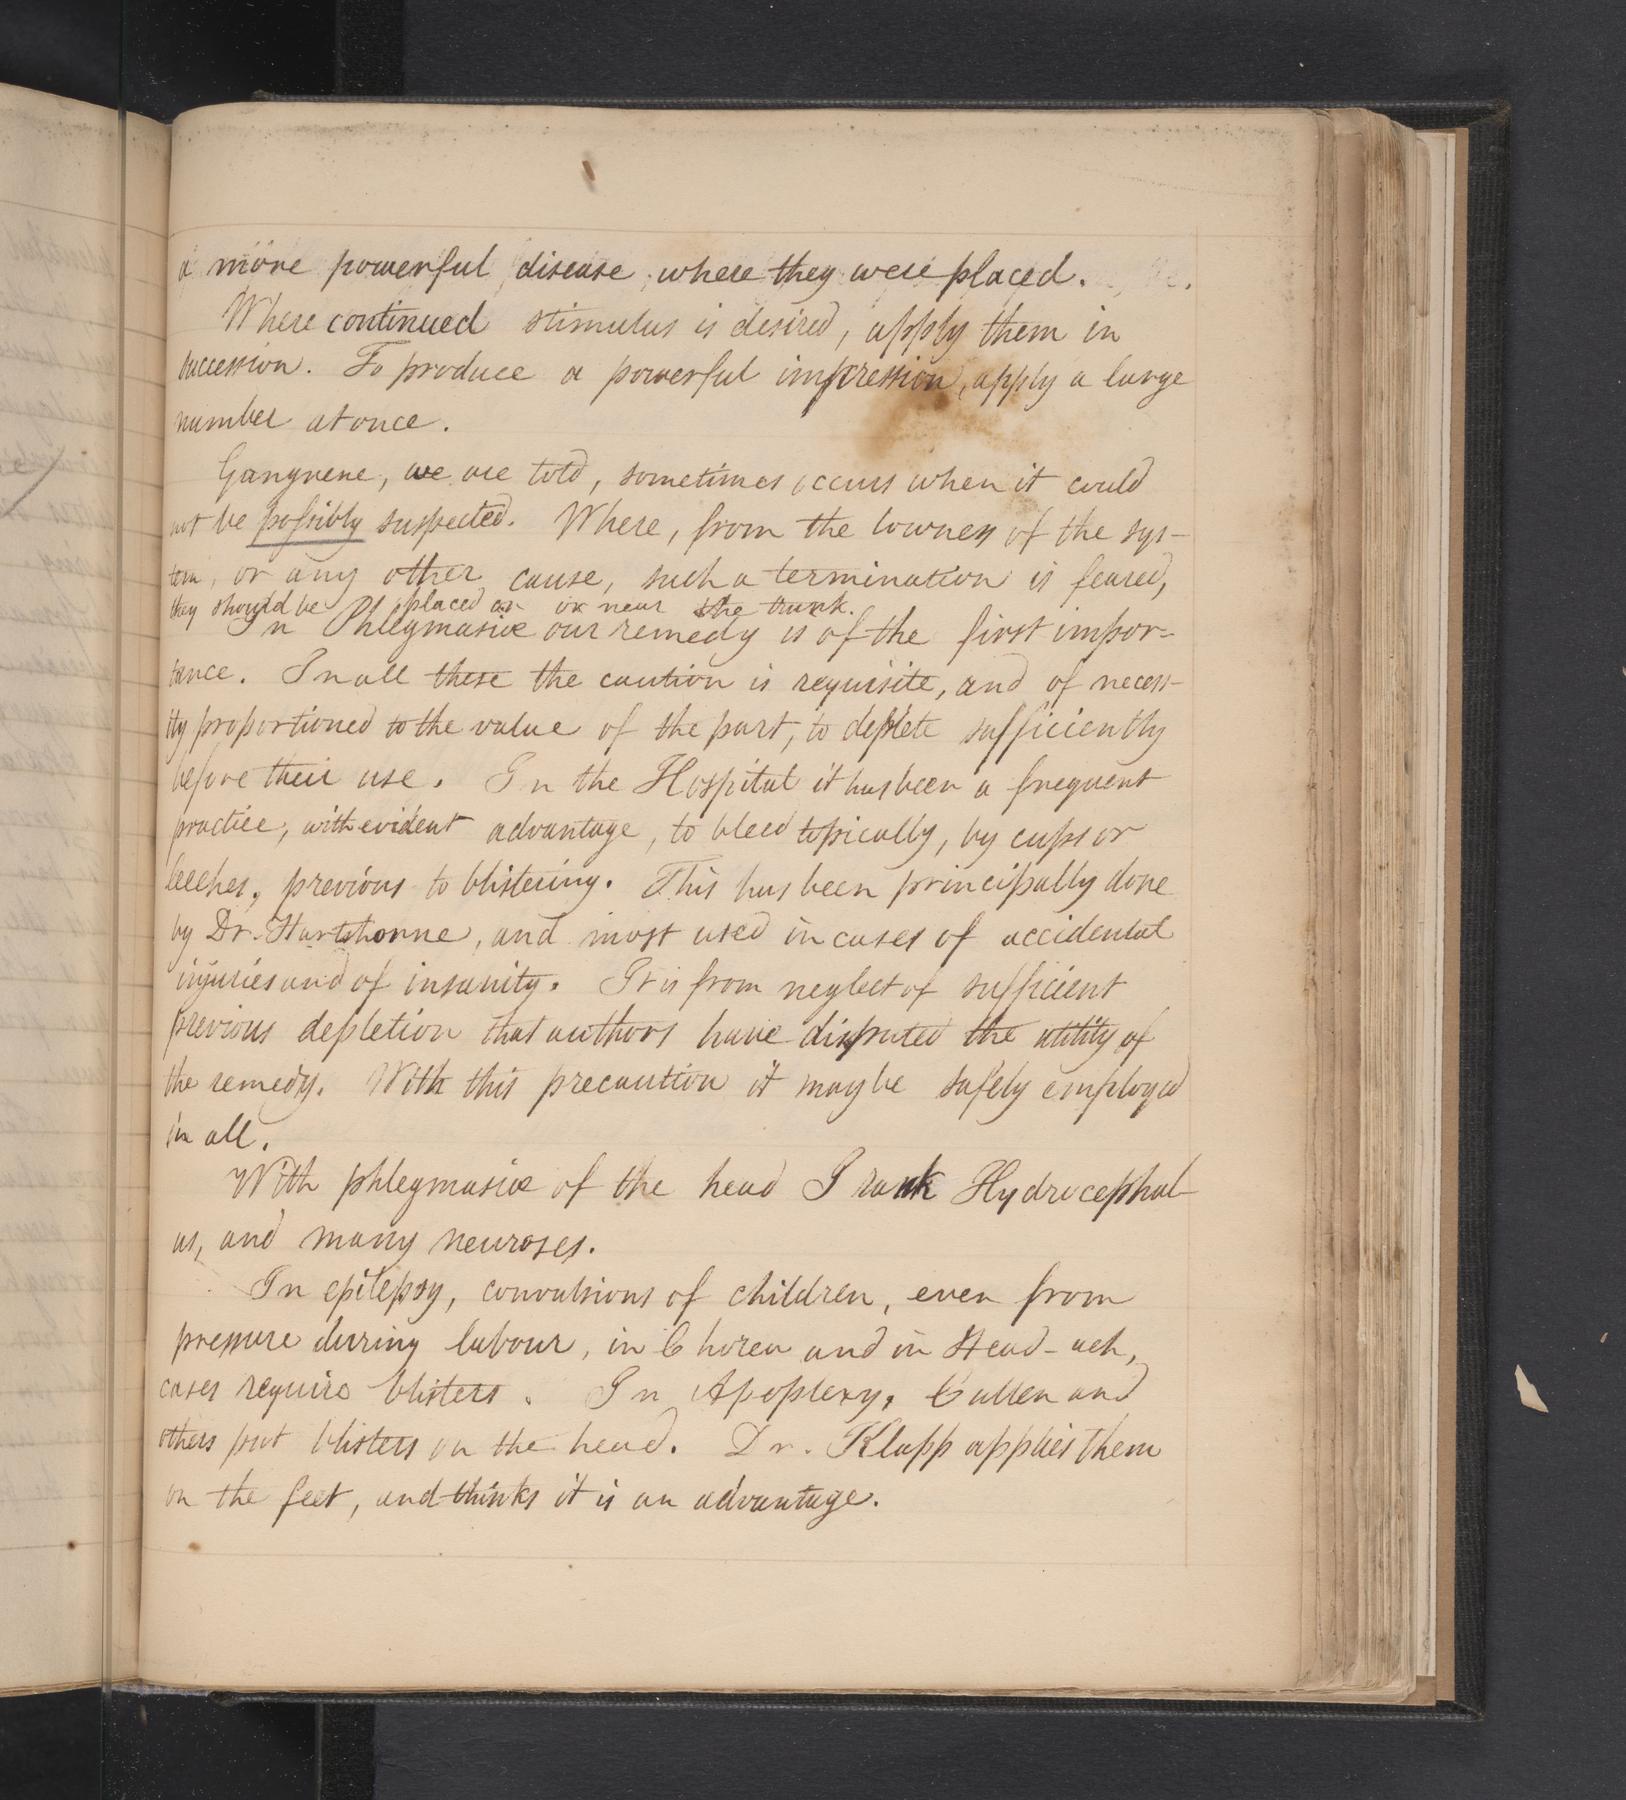 a more powerful disease where they were placed.
Where continued stimulus is desired, apply them in
succession. To produce a powerful impression, apply a large
number at once.
Gangrene, we are told, sometimes occurs when it could
not be possibly suspected. Where, from the lowness of the sys-
tem, or any other cause, such a termination is feared,
they should be placed on or near the trunk.
In Phlegmasiæ our remedy is of the first impor-
tance. In all these the caution is requisite, and of necess-
ity proportioned to the value of the part, to deplete sufficiently
before their use. In the Hospital it has been a frequent
practice, with evident advantage, to bleed topically, by cups or
leeches, previous to blistering. This has been principally done
by Dr. Hartshorne, and most used in cases of accidental
injuries and of insanity. It is from neglect of sufficient
previous depletion that authors have disputed the utility of
the remedy. With this precaution it may be safely employed
in all.
With phlegmasiæ of the head I rank Hydrocephal-
us, and many neuroses.
In epilepsy, convulsions of children, even from
pressure during labour, in Chorea and in Head-ach,
cases require blisters. In Apoplexy, Cullen and
others put blisters on the head. Dr. Klapp applies them
on the feet, and thinks it is an advantage.